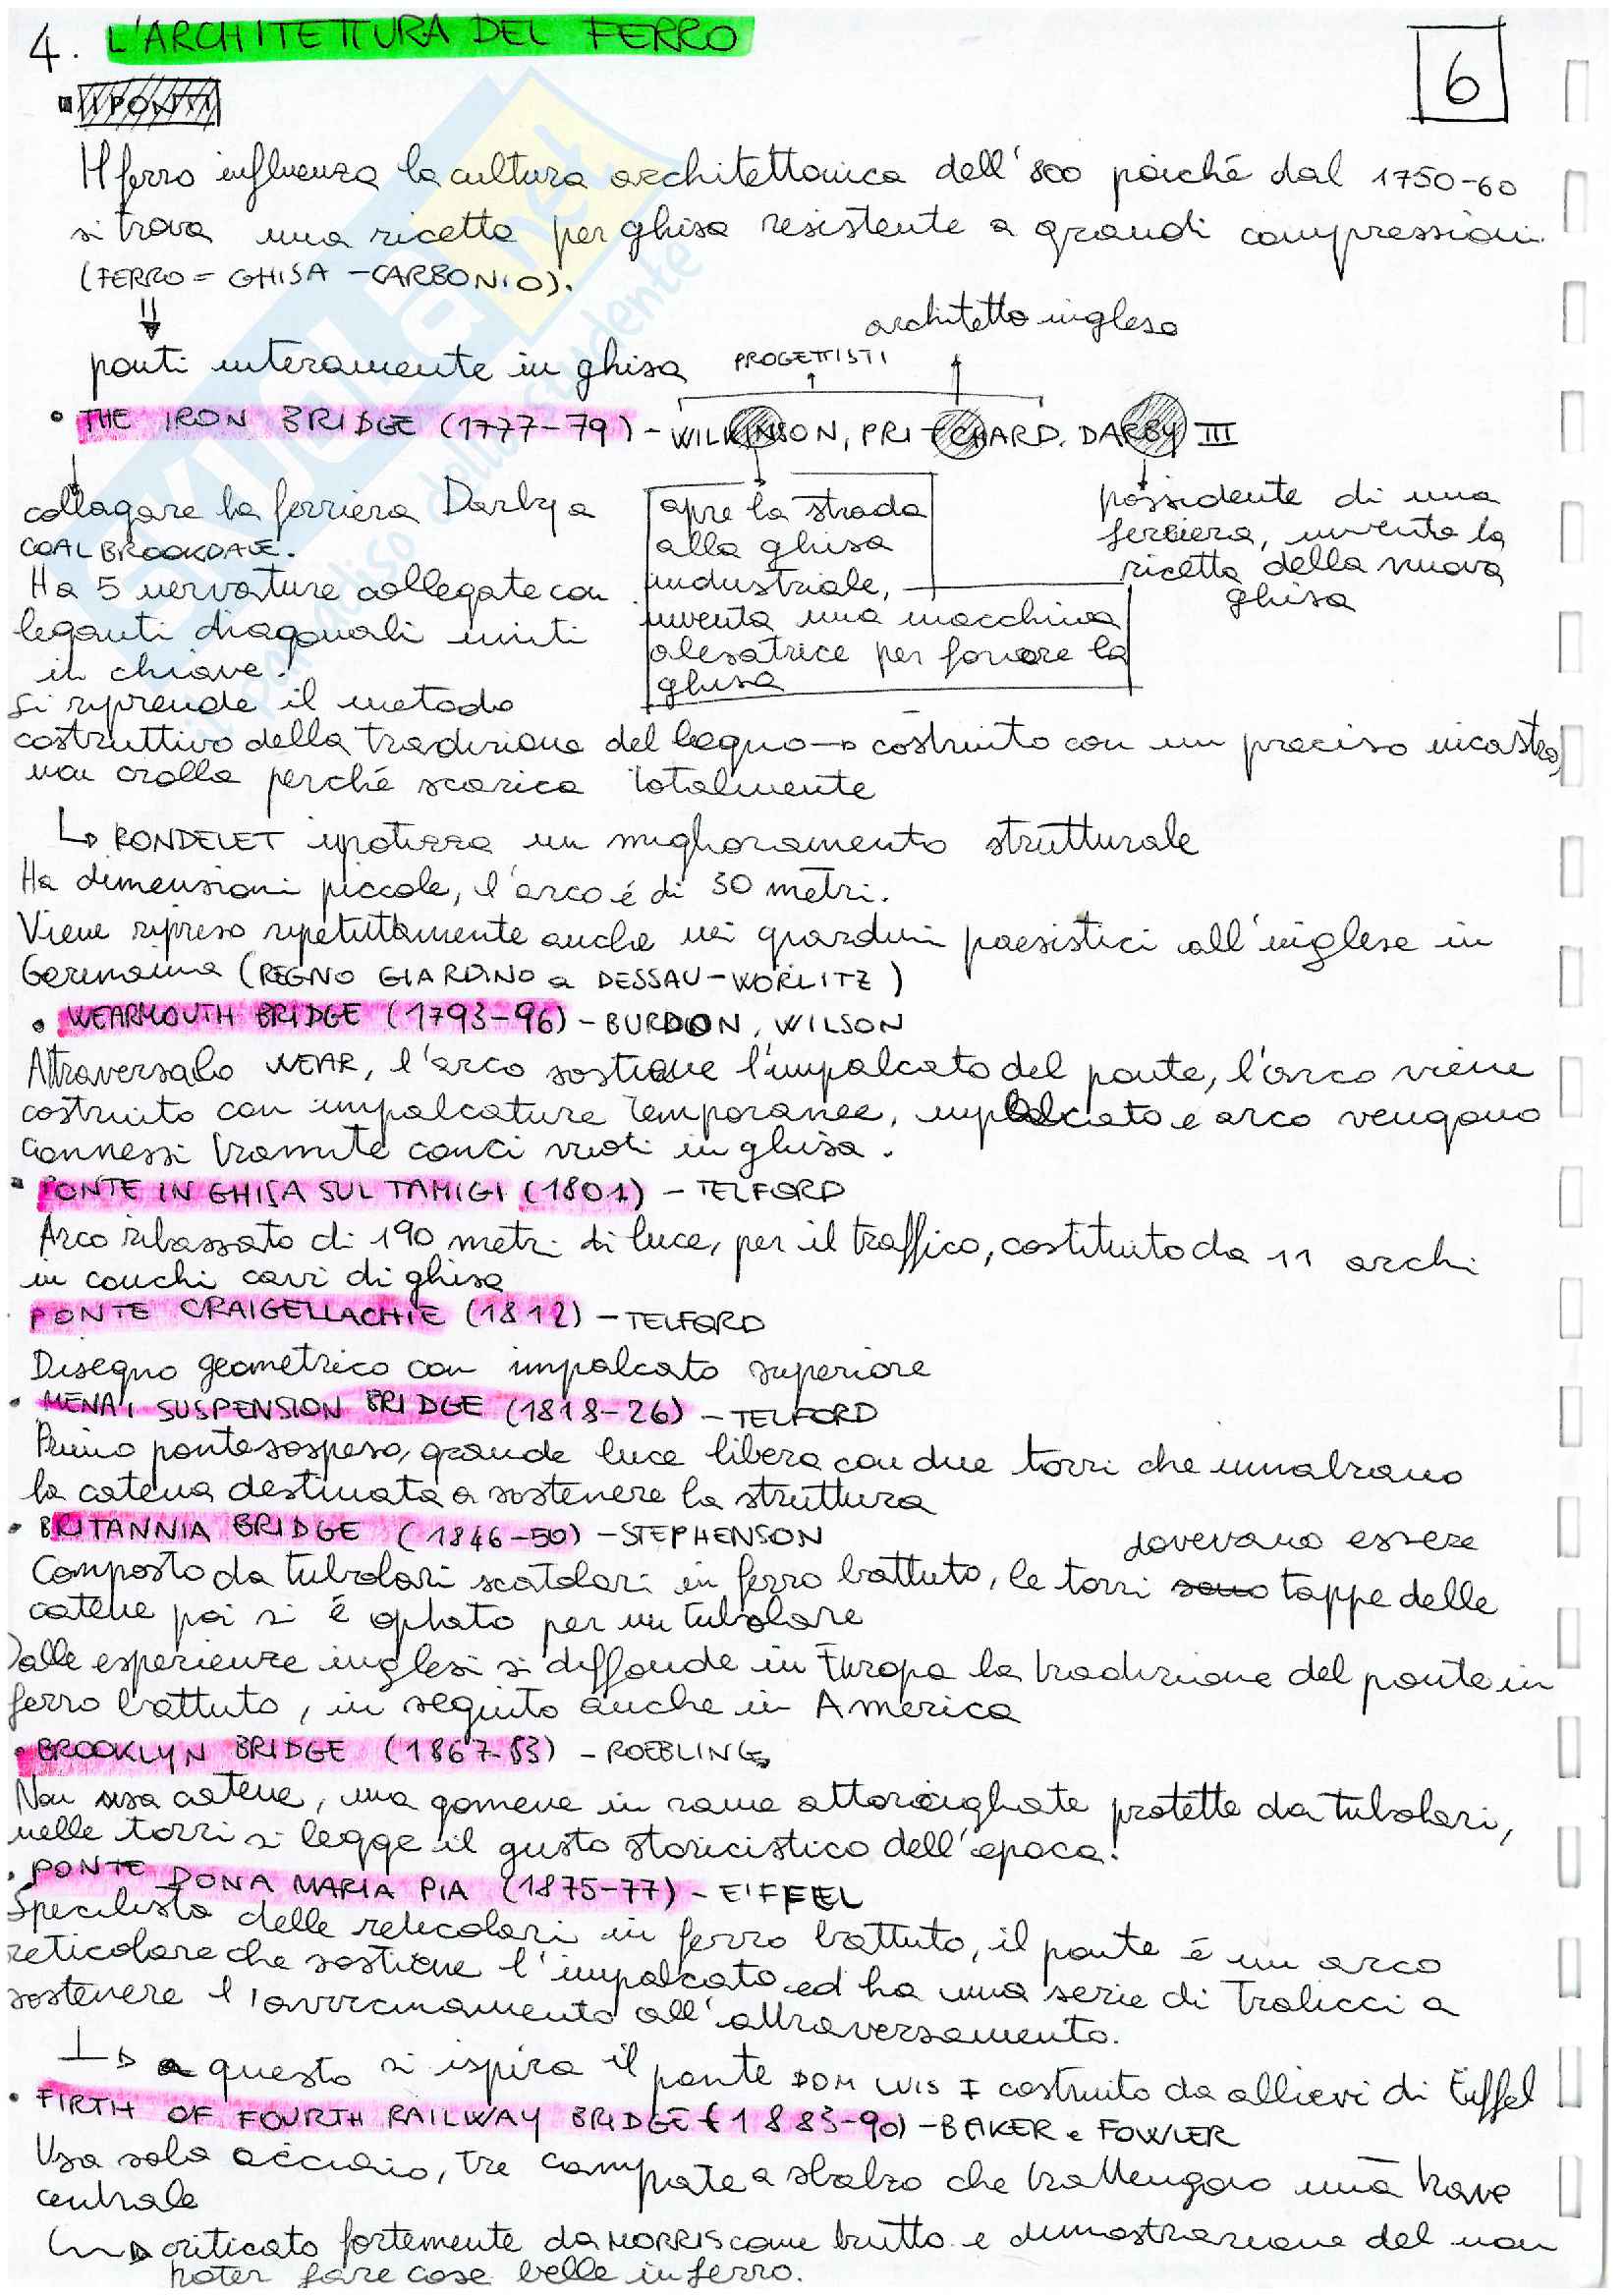 4. L'ARCHITETTURA DEL FERRO
6
I PONTI
Il ferro influenza la cultura architettonica dell'800 poiché dal 1750-60
si trova una ricetta per ghisa resistente a grandi compressioni
(FERRO = GHISA - CARBONIO).
architetto inglese
ponti interamente in ghisa PROGETTISTI
• THE IRON BRIDGE (1777-79) - WILKINSON, PRITCHARD, DARBY III
collagare la ferriera Darby a
COALBROOKDALE.
Ha 5 nervature collegate con
leganti diagonali uniti
in chiave.
Si riprende il metodo
apre la strada
alla ghisa
industriale,
inventa una macchina
alesatrice per forare la
ghisa
possidente di una
ferriera, inventa la
ricetta della nuova
ghisa
costruttivo della tradizione del legno → costruito con un preciso incastro,
non crolla perché scarica totalmente
↳ RONDELET ipotizza un miglioramento strutturale
Ha dimensioni piccole, l'arco é di 30 metri.
Viene ripreso ripetutamente anche nei giardini paesistici all'inglese in
Germania (REGNO GIARDINO a DESSAU-WÖRLITZ)
• WEARMOUTH BRIDGE (1793-96) - BURDON, WILSON
Attraversa lo WEAR, l'arco sostiene l'impalcato del ponte, l'arco viene
costruito con impalcature temporanee, impalcato e arco vengono
connessi tramite conci vuoti in ghisa.
▪ PONTE IN GHISA SUL TAMIGI (1801) - TELFORD
Arco ribassato di 190 metri di luce, per il traffico, costituito da 11 archi
in conchi cavi di ghisa
• PONTE CRAIGELLACHIE (1812) - TELFORD
Disegno geometrico con impalcato superiore
• MENAI SUSPENSION BRIDGE (1818-26) - TELFORD
Primo ponte sospeso, grande luce libera con due torri che innalzano
la catena destinata a sostenere la struttura
• BRITANNIA BRIDGE (1846-50) - STEPHENSON
dovevano essere
Composto da tubolari scatolari in ferro battuto, le torri sono tappe delle
catene poi si é optato per un tubolare
Dalle esperienze inglesi si diffonde in Europa la tradizione del ponte in
ferro battuto, in seguito anche in America
• BROOKLYN BRIDGE (1867-83) - ROEBLING
Non usa catene, ma gomene in rame attorcigliate protette da tubolari,
nelle torri si legge il gusto storicistico dell'epoca!
• PONTE DONA MARIA PIA (1875-77) - EIFFEL
Specilista delle reticolari in ferro battuto, il ponte é un arco
reticolare che sostiene l'impalcato ed ha una serie di tralicci a
sostenere l'avvicinamento all'attraversamento.
↳ a questo si ispira il ponte DOM LUIS I costruito da allievi di Eiffel
• FIRTH OF FOURTH RAILWAY BRIDGE (1883-90) - BAKER e FOWLER
Usa solo acciaio, tre campate a sbalzo che trattengono una trave
centrale
↳ criticato fortemente da MORRIS come brutto e dimostrazione del non
poter fare cose belle in ferro.